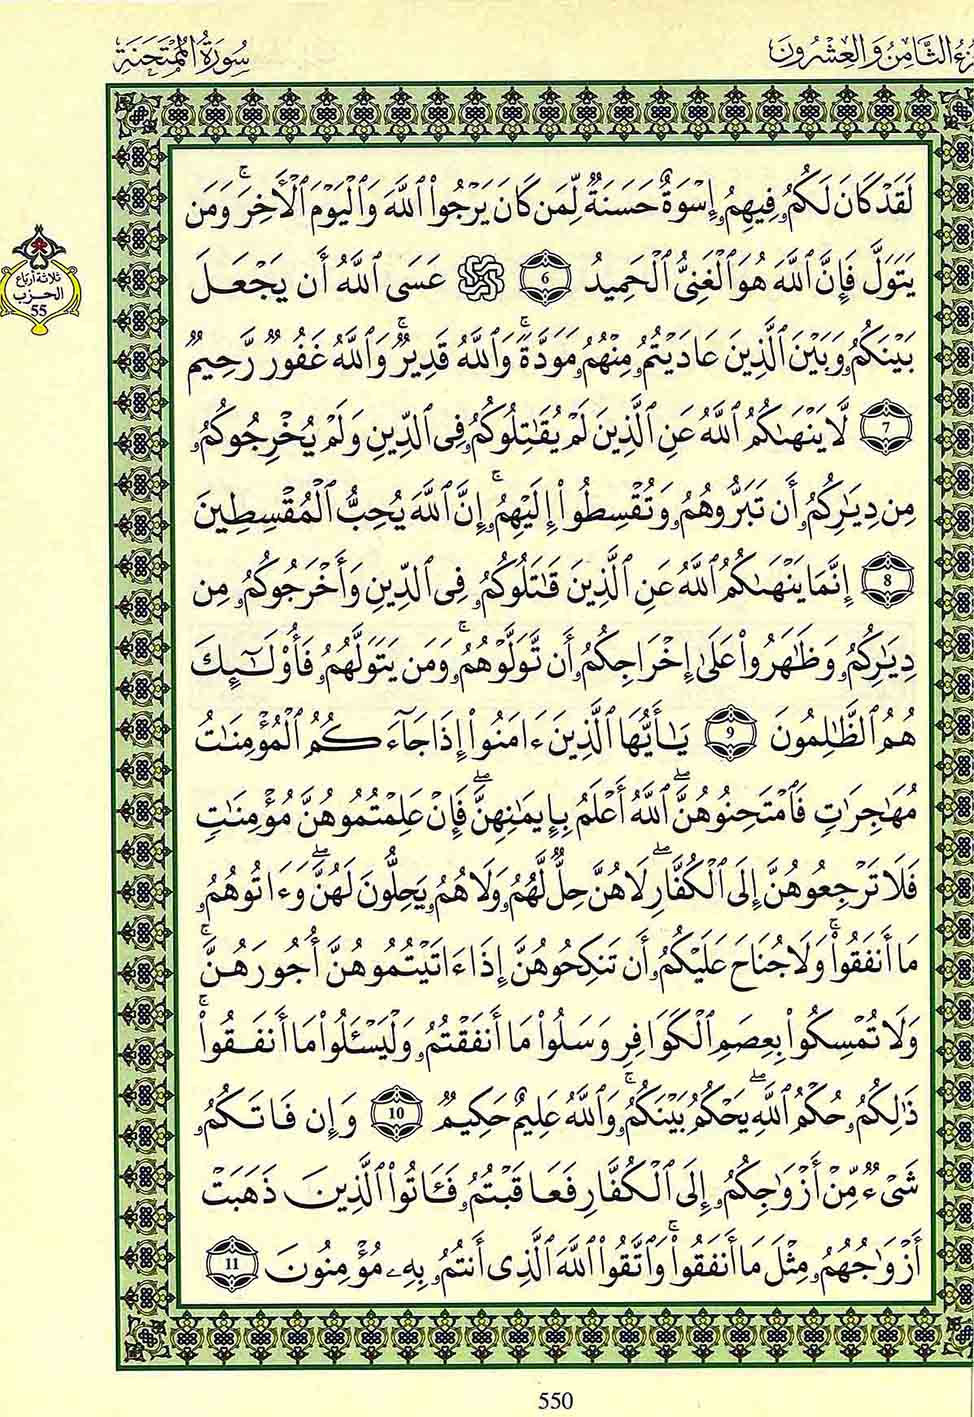 سُورَةُ الْمُمْتَحَنَةِ
زْءُ الثَّامِنُ وَالْعِشْرُونَ
لَقَدْ كَانَ لَكُمُۥ فِيهِمُۥٓ إِسْوَةٌ حَسَنَةٌ لِّمَن كَانَ يَرْجُوا۟ اللَّهَ وَالْيَوْمَ الْأَخِرَ ۚ وَمَن
يَتَوَلَّ فَإِنَّ اللَّهَ هُوَ الْغَنِىُّ الْحَمِيدُ 6 ۞ عَسَى اللَّهُ أَن يَجْعَلَ
ثلاثة أرباع
الحزب
55
بَيْنَكُمُۥ وَبَيْنَ الَّذِينَ عَادَيْتُمُۥ مِنْهُمُۥ مَوَدَّةً ۚ وَاللَّهُ قَدِيرٌ ۚ وَاللَّهُ غَفُورٌ رَّحِيمٌ
7 لَّا يَنْهَىٰكُمُ اللَّهُ عَنِ الَّذِينَ لَمْ يُقَٰتِلُوكُمُۥ فِى الدِّينِ وَلَمْ يُخْرِجُوكُمُۥ
مِن دِيَٰرِكُمُۥٓ أَن تَبَرُّوهُمُۥ وَتُقْسِطُوٓا۟ إِلَيْهِمُۥٓ ۚ إِنَّ اللَّهَ يُحِبُّ الْمُقْسِطِينَ
8 إِنَّمَا يَنْهَىٰكُمُ اللَّهُ عَنِ الَّذِينَ قَٰتَلُوكُمُۥ فِى الدِّينِ وَأَخْرَجُوكُمُۥ مِن
دِيَٰرِكُمُۥ وَظَٰهَرُوا۟ عَلَىٰٓ إِخْرَاجِكُمُۥٓ أَن تَّوَلَّوْهُمُۥ ۚ وَمَن يَتَوَلَّهُمُۥ فَأُو۟لَٰٓئِكَ
هُمُ الظَّٰلِمُونَ 9 يَٰٓأَيُّهَا الَّذِينَ ءَامَنُوٓا۟ إِذَا جَآءَكُمُ الْمُؤْمِنَٰتُ
مُهَٰجِرَٰتٍ فَامْتَحِنُوهُنَّ ۖ اللَّهُ أَعْلَمُ بِإِيمَٰنِهِنَّ ۖ فَإِنْ عَلِمْتُمُوهُنَّ مُؤْمِنَٰتٍ
فَلَا تَرْجِعُوهُنَّ إِلَى الْكُفَّارِ ۖ لَا هُنَّ حِلٌّ لَّهُمُۥ وَلَا هُمُۥ يَحِلُّونَ لَهُنَّ ۖ وَءَاتُوهُمُۥ
مَا أَنفَقُوا۟ ۚ وَلَا جُنَاحَ عَلَيْكُمُۥٓ أَن تَنكِحُوهُنَّ إِذَآ ءَاتَيْتُمُوهُنَّ أُجُورَهُنَّ ۚ
وَلَا تُمْسِكُوا۟ بِعِصَمِ الْكَوَافِرِ وَسَلُوا۟ مَا أَنفَقْتُمُۥ وَلْيَسْـَٔلُوا۟ مَا أَنفَقُوا۟ ۚ
ذَٰلِكُمُۥ حُكْمُ اللَّهِ ۖ يَحْكُمُ بَيْنَكُمُۥ ۚ وَاللَّهُ عَلِيمٌ حَكِيمٌ 10 وَإِن فَاتَكُمُۥ
شَىْءٌ مِّنْ أَزْوَٰجِكُمُۥٓ إِلَى الْكُفَّارِ فَعَاقَبْتُمُۥ فَـَٔاتُوا۟ الَّذِينَ ذَهَبَتْ
أَزْوَٰجُهُمُۥ مِثْلَ مَا أَنفَقُوا۟ ۚ وَاتَّقُوا۟ اللَّهَ الَّذِىٓ أَنتُمُۥ بِهِۦ مُؤْمِنُونَ 11
550